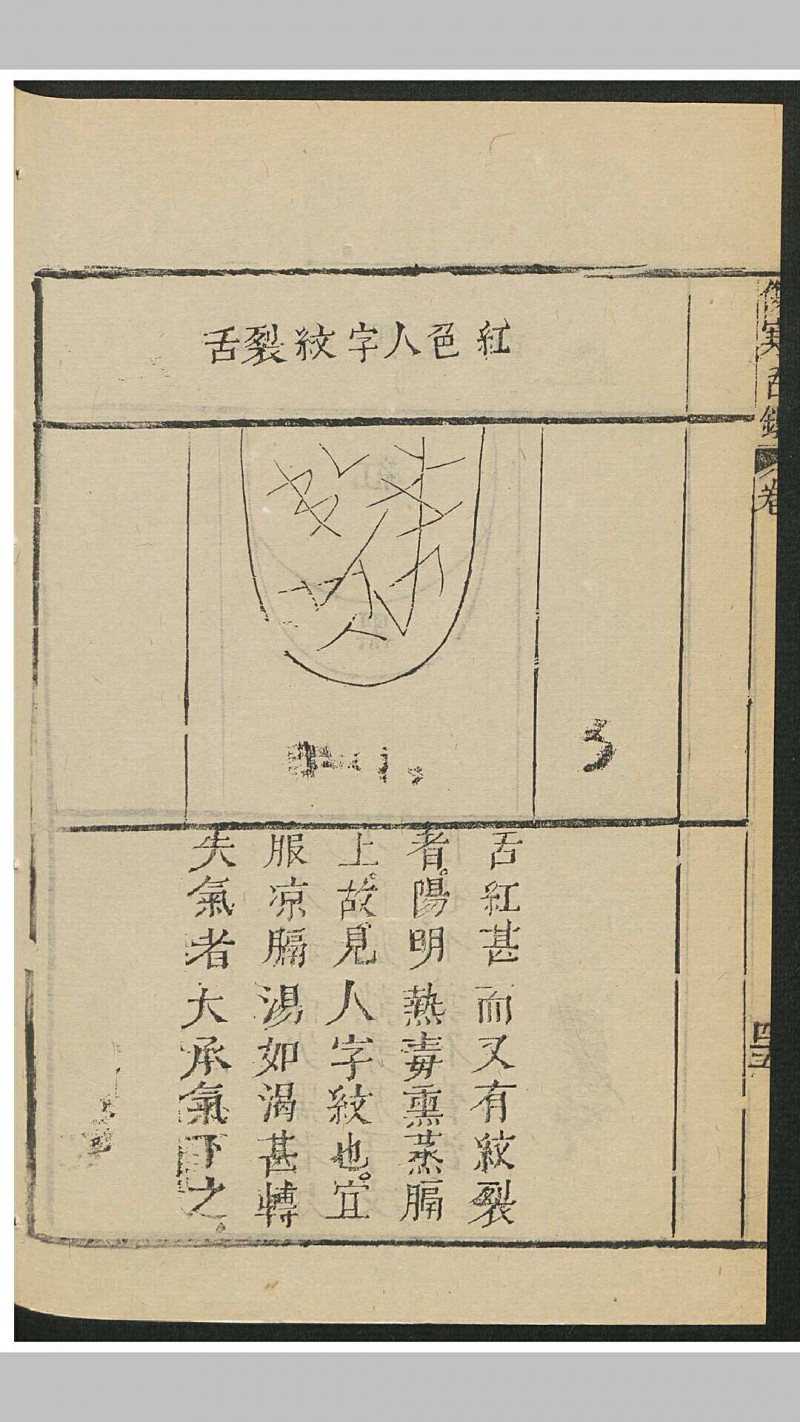 傷寒舌鑑 卷
四五
紅色人字紋裂舌
舌紅甚而又有紋裂
者。陽明熱毒熏蒸膈
上。故見人字紋也。宜
服凉膈湯如渴甚轉
失氣者大承氣下之。